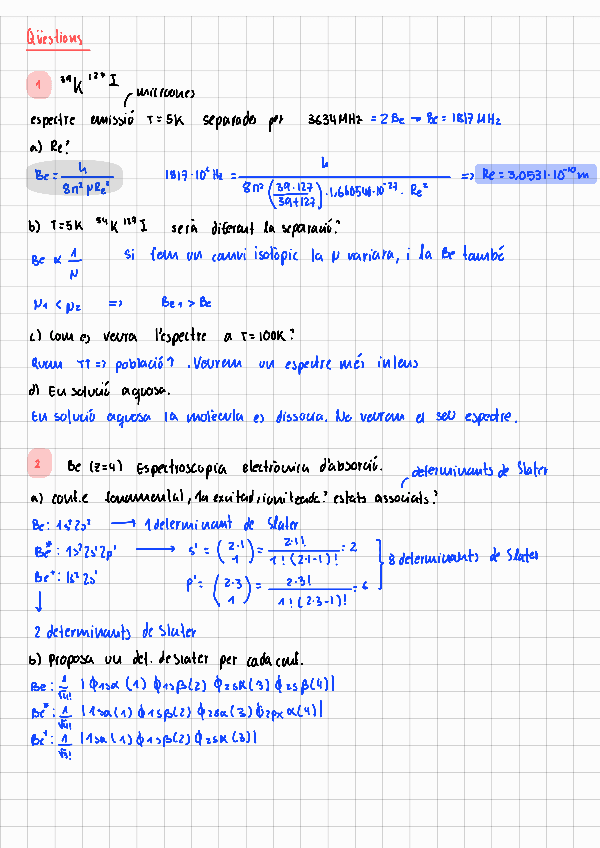 Qüestions
1 ³⁹K ¹²⁷I
microones
espectre emissió T=5K separades per 3634MHz = 2Be → Be = 1817MHz
a) Re?
Be = h / 8π²μRe² 1817·10⁶Hz = h / 8π² (39·127 / 39+127) · 1,660540·10⁻²⁷ · Re² => Re = 3,0531·10⁻¹⁰m
b) T=5K K I serà diferent la separació?
Be ∝ 1/μ Si fem un canvi isotòpic la μ variara, i la Be també
μ₁ < μ₂ => Be₁ > Be
c) Com es veura l'espectre a T=100K?
Quan T↑ => població↑. Veurem un espectre més intens
d) En solució aquosa.
En solució aquosa la molècula es dissocia. No veurem el seu espectre.
2 Be (Z=4) Espectroscopia electrònica d'absorció.
determinants de Slater
a) conf.e fonamental, 1a excitad, ionitzada? estats associats?
Be: 1s²2s² → 1 determinant de Slater
Be*: 1s²2s¹2p¹ → s¹ = (2·1 / 1) = 2·1! / 1!(2·1-1)! = 2
8 determinants de Slater
Be⁺: 1s²2s¹ p¹ = (2·3 / 1) = 2·3! / 1!(2·3-1)! = 6
↓
2 determinants de Slater
b) Proposa un det. de slater per cada conf.
Be: 1/√4! |ϕ1sα(1) ϕ1sβ(2) ϕ2sα(3) ϕ2sβ(4)|
Be*: 1/√4! |1sα(1) ϕ1sβ(2) ϕ2sα(3) ϕ2pxα(4)|
Be⁺: 1/√3! |1sα(1) ϕ1sβ(2) ϕ2sα(3)|